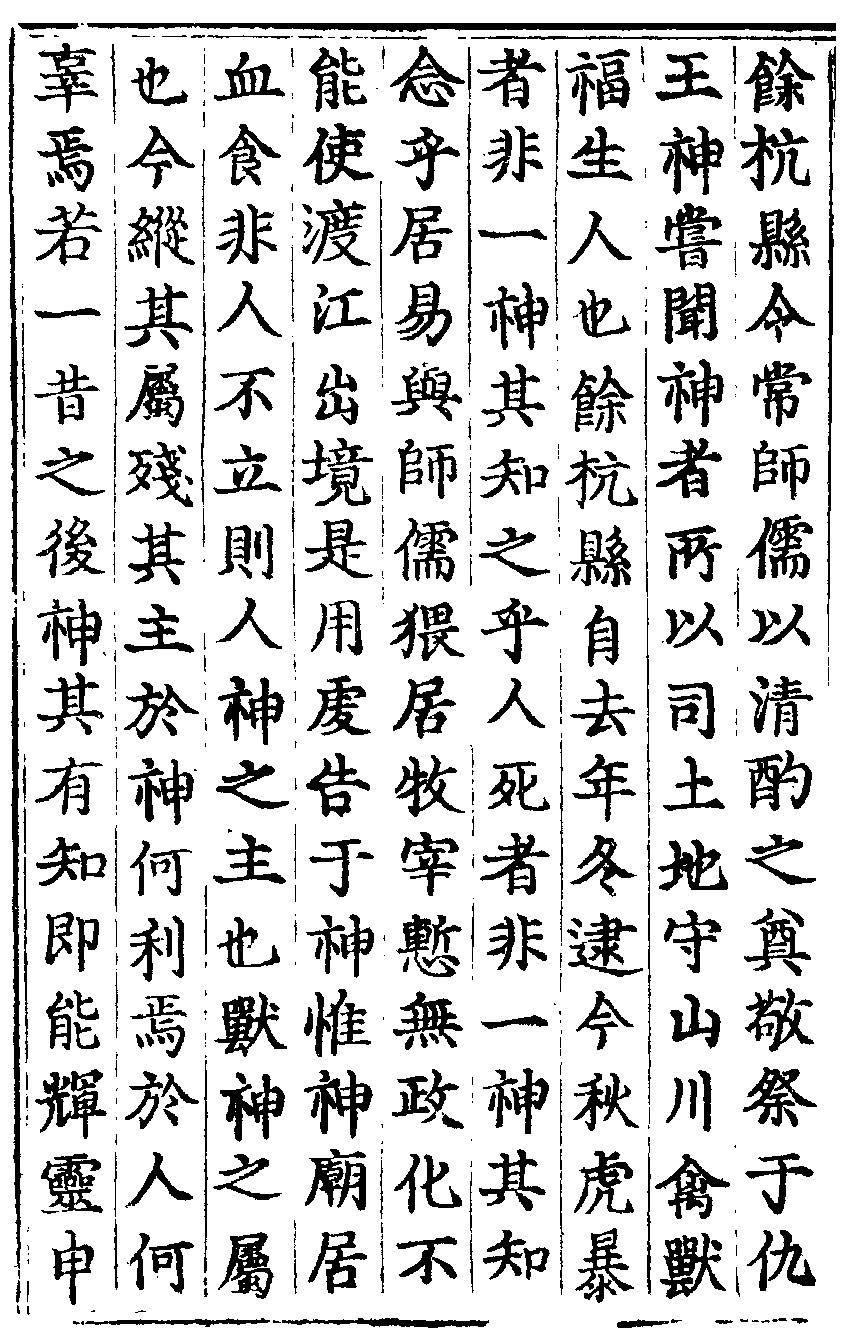 餘杭縣令常師儒以清酌之奠敬祭于仇
王神嘗聞神者所以司土地守山川禽獸
福生人也餘杭縣自去年冬逮今秋虎暴
者非一神其知之乎人死者非一神其知
念乎居易與師儒猥居牧宰慙無政化不
能使渡江出境是用虔告于神惟神廟居
血食非人不立則人神之主也獸神之屬
也今縱其屬殘其主於神何利焉於人何
辜焉若一昔之後神其有知即能輝靈申